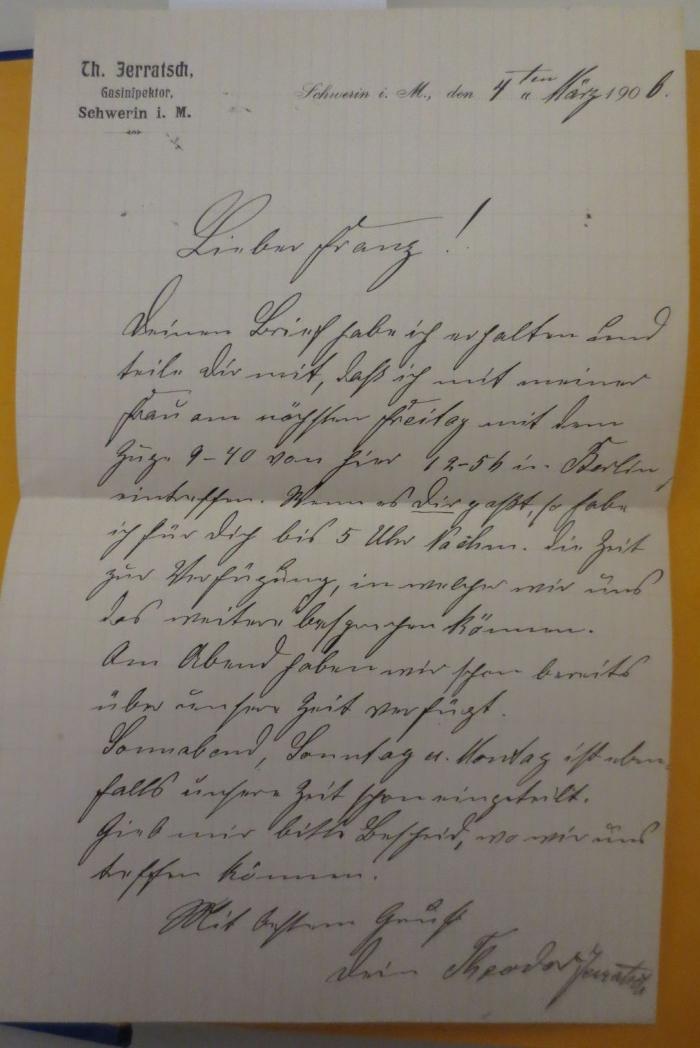 Th. Jerratsch,
Gasinspektor,
Schwerin i. M.
Schwerin i. M., den 4ten März 1906.
Lieber Franz!
Deinen Brief habe ich erhalten und
teile Dir mit, daß ich mit meiner
Frau am nächsten Freitag mit dem
Zuge 9-40 von hier 12-56 in Berlin
eintreffen. Wenn es Dir paßt, so habe
ich für Dich bis 5 Uhr Nachm. die Zeit
zur Verfügung, in welcher wir uns
das weitere besprechen können.
Am Abend haben wir schon bereits
über unsere Zeit verfügt.
Sonnabend, Sonntag u. Montag ist eben-
falls unsere Zeit schon eingeteilt.
Gieb mir bitte Bescheid, wo wir uns
treffen können.
Mit bestem Gruß
Dein Theodor Jerratsch